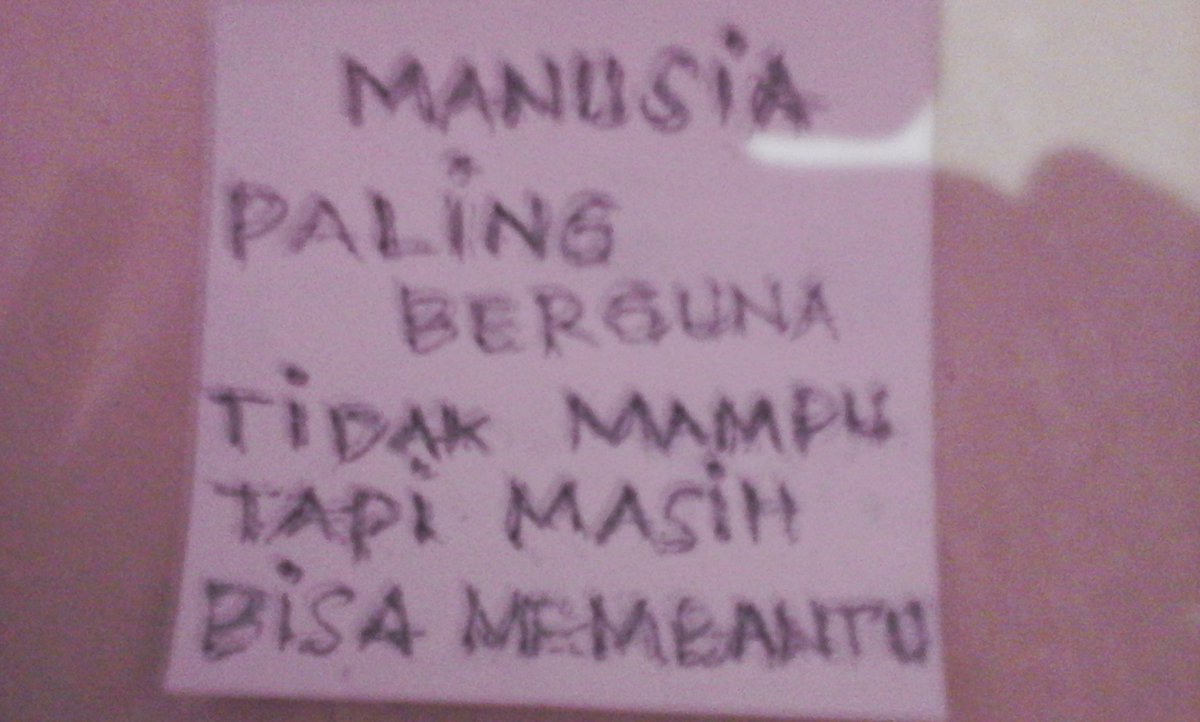 MANUSiA
PALiNG
BERGUNA
TiDAK MAMPU
TAPi MASiH
BiSA MEMBANTU